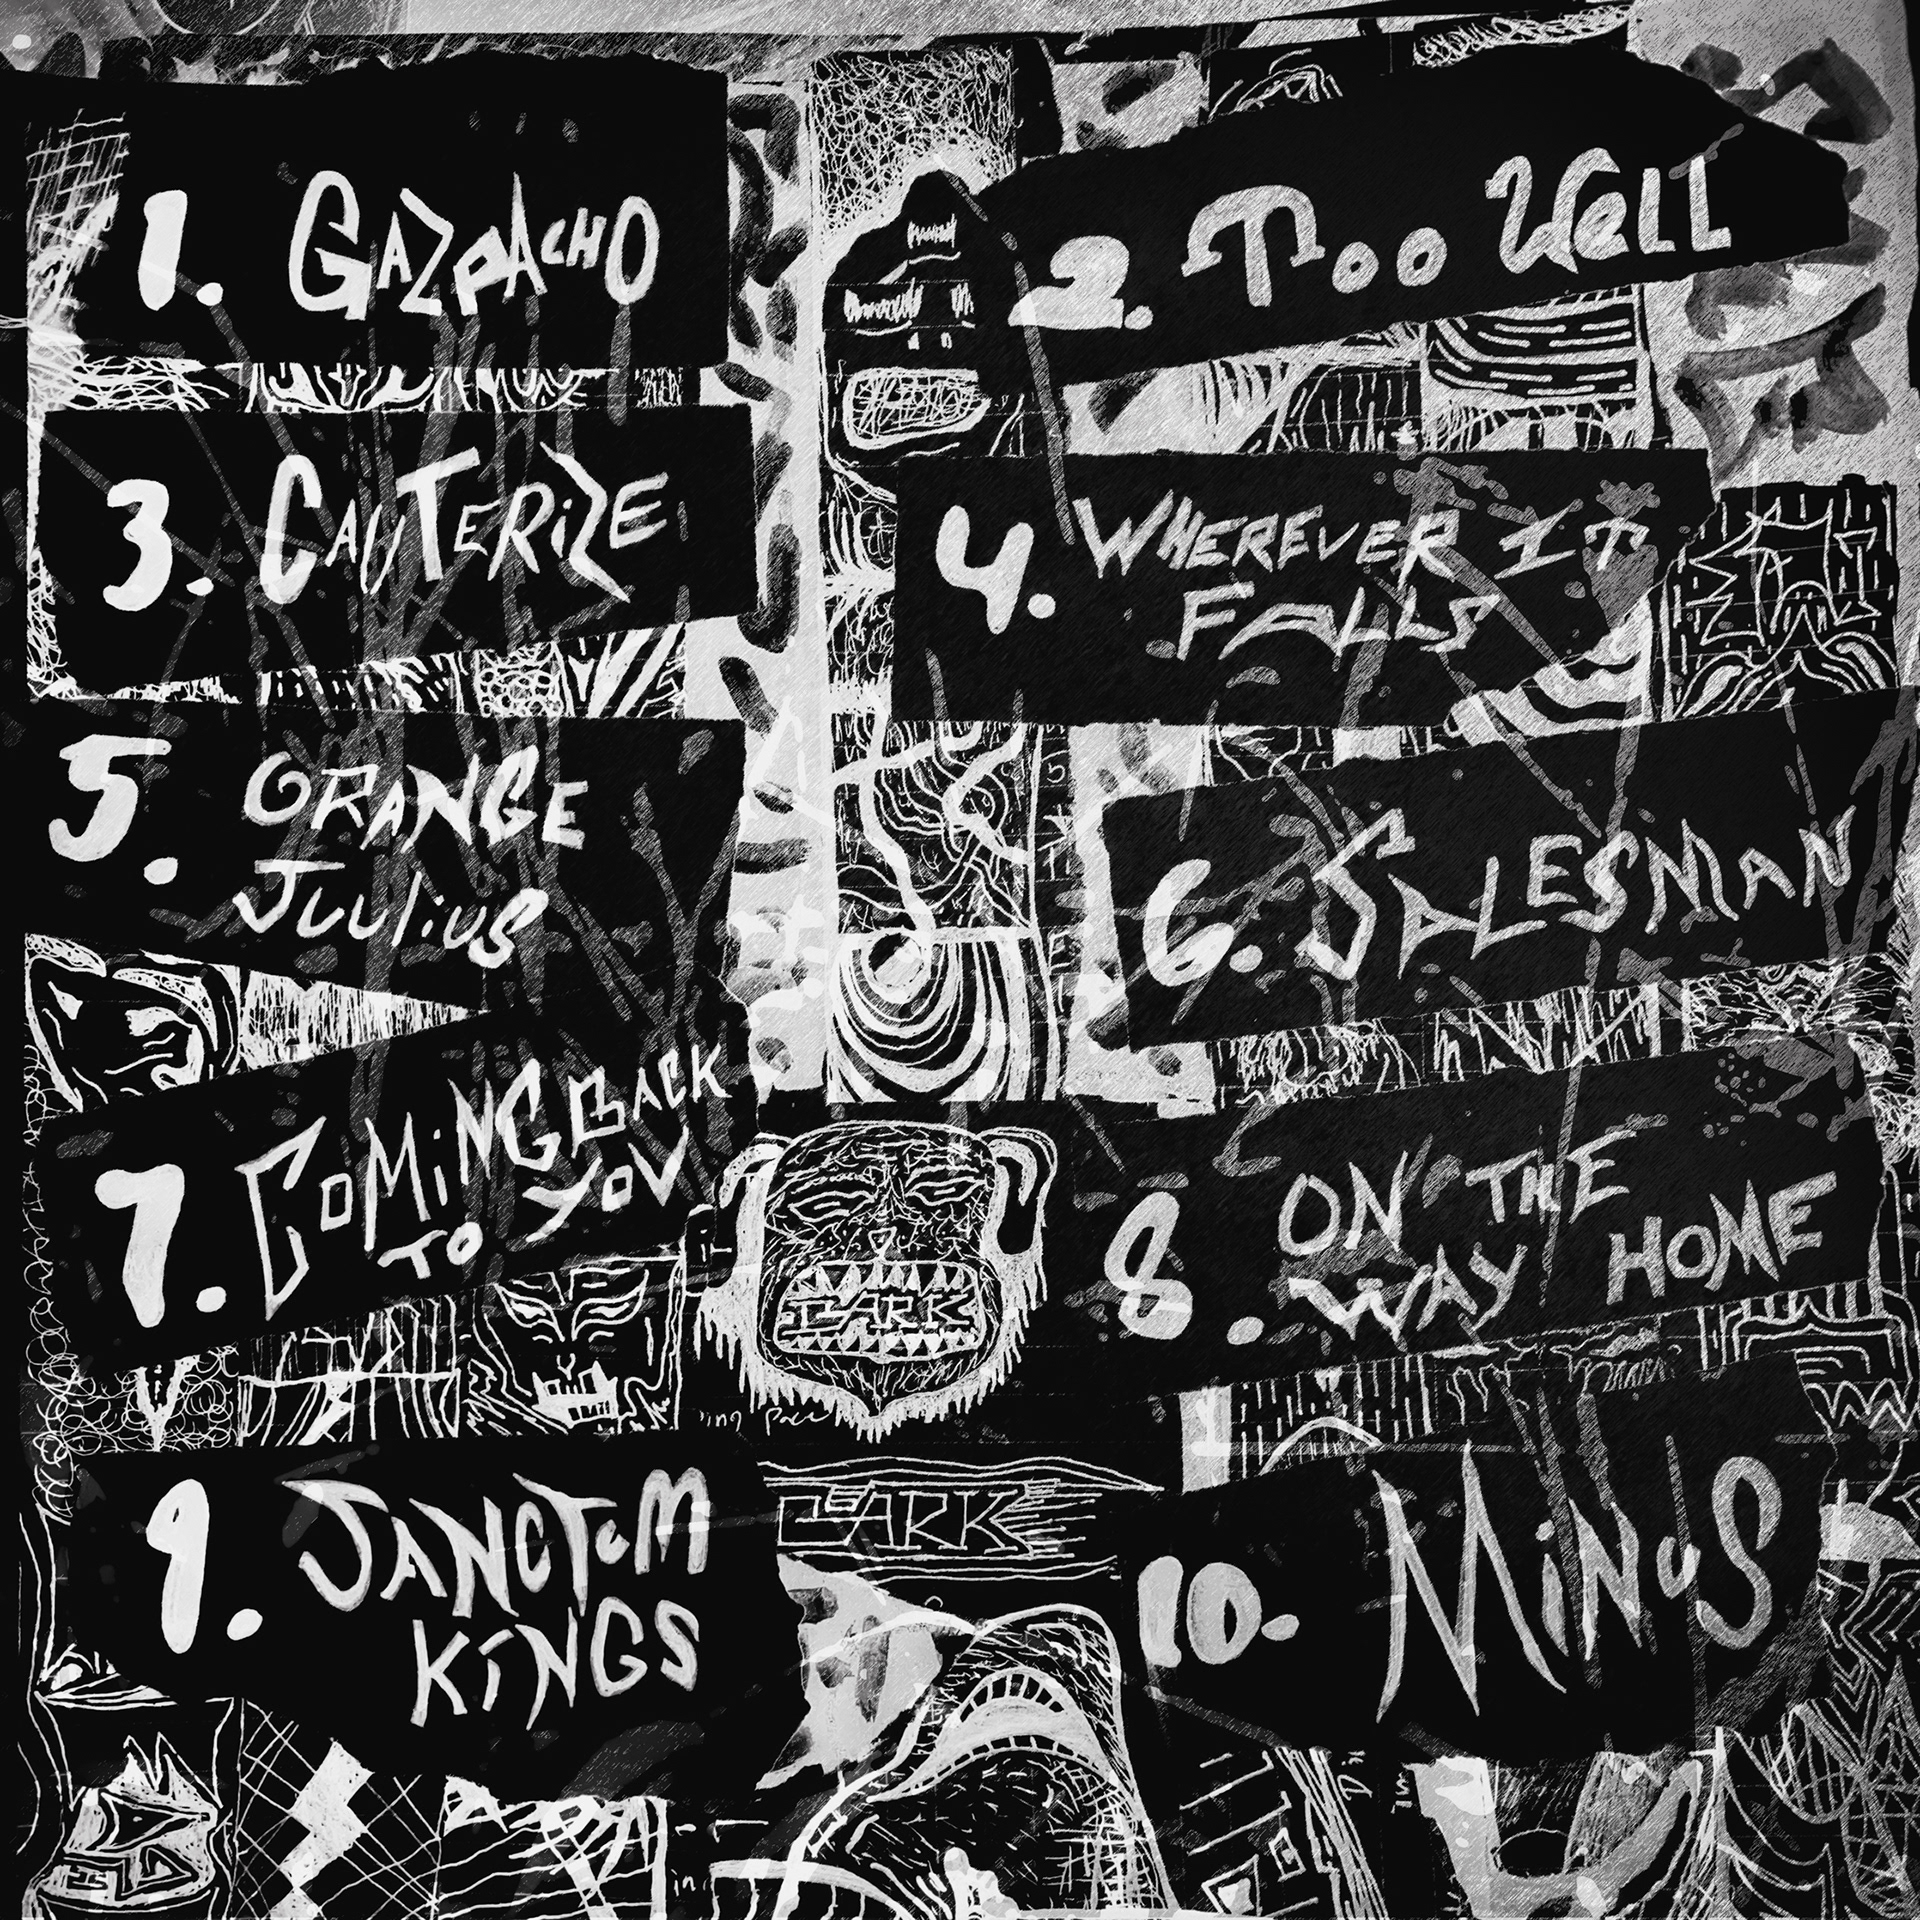 1. GAZPACHO
2. TOO WELL
3. CAUTERiZE
4. WHEREVER IT
FALLS
5. ORANGE
JuuliuS
6. SALESMAN
7. COMiNG BACK
TO YOU
8. ON THE
WAY HOME
DARK
9. SANCTuM
KiNGS
DARK
10. MiNuS